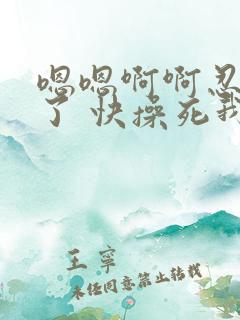 嗯嗯啊啊忍
了 快操死我
王宁
未经同意禁止转载